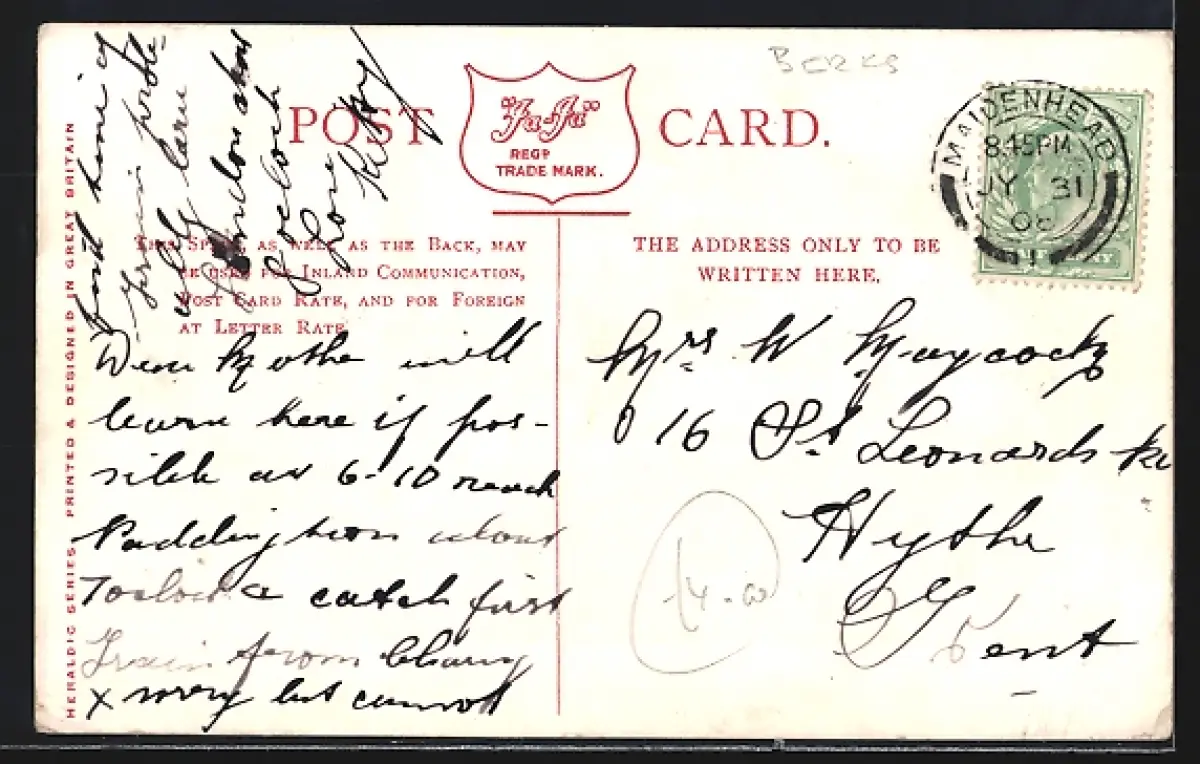 Berks
POST CARD.
"Ja-Ja"
REGD
TRADE MARK.
MAIDENHEAD
8.45PM
JY 31
08
HALFPENNY
THIS SPACE, AS WELL AS THE BACK, MAY
BE USED FOR INLAND COMMUNICATION,
POST CARD RATE, AND FOR FOREIGN
AT LETTER RATE.
THE ADDRESS ONLY TO BE
WRITTEN HERE.
HERALDIC SERIES PRINTED & DESIGNED IN GREAT BRITAIN
Dear Mother will
leave here if pos-
sible at 6-10 reach
Paddington about
7 oclock & catch first
Train from Charing
X
but cannot
find time of
train
will leave
London about
8 oclock
Love
Mrs W Maycock
16 St Leonards Rd
Hythe
Kent